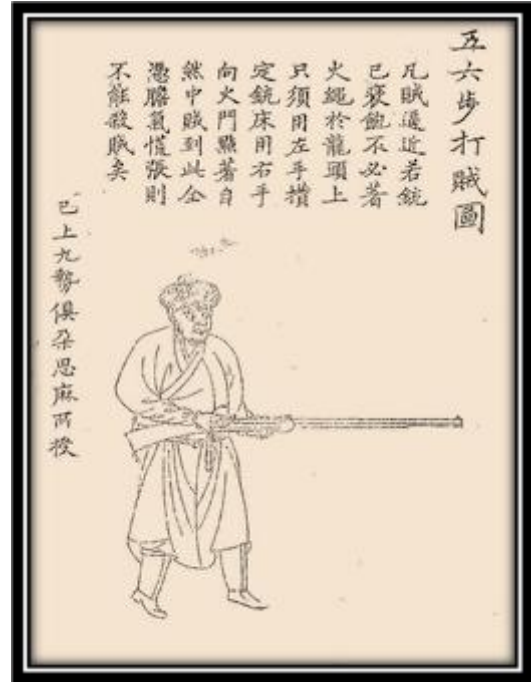 五六步打賊圖
凡賊逼近若銃
已裝飽不必著
火繩於龍頭上
只須用左手攢
定銃床用右手
向火門點著自
然中賊到此全
憑膽氣慌張則
不能殺賊矣
已上九勢俱朶思麻所授